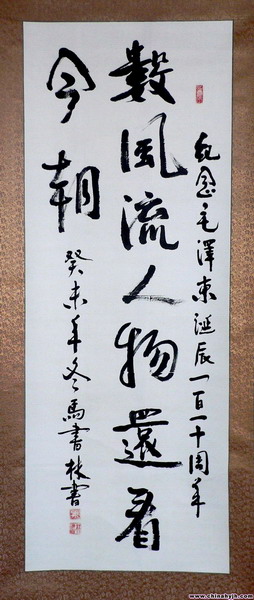 纪念毛澤東誕辰一百一十周年
數風流人物還看
今朝
癸未年冬馬書林書
www.chinahyjh.com